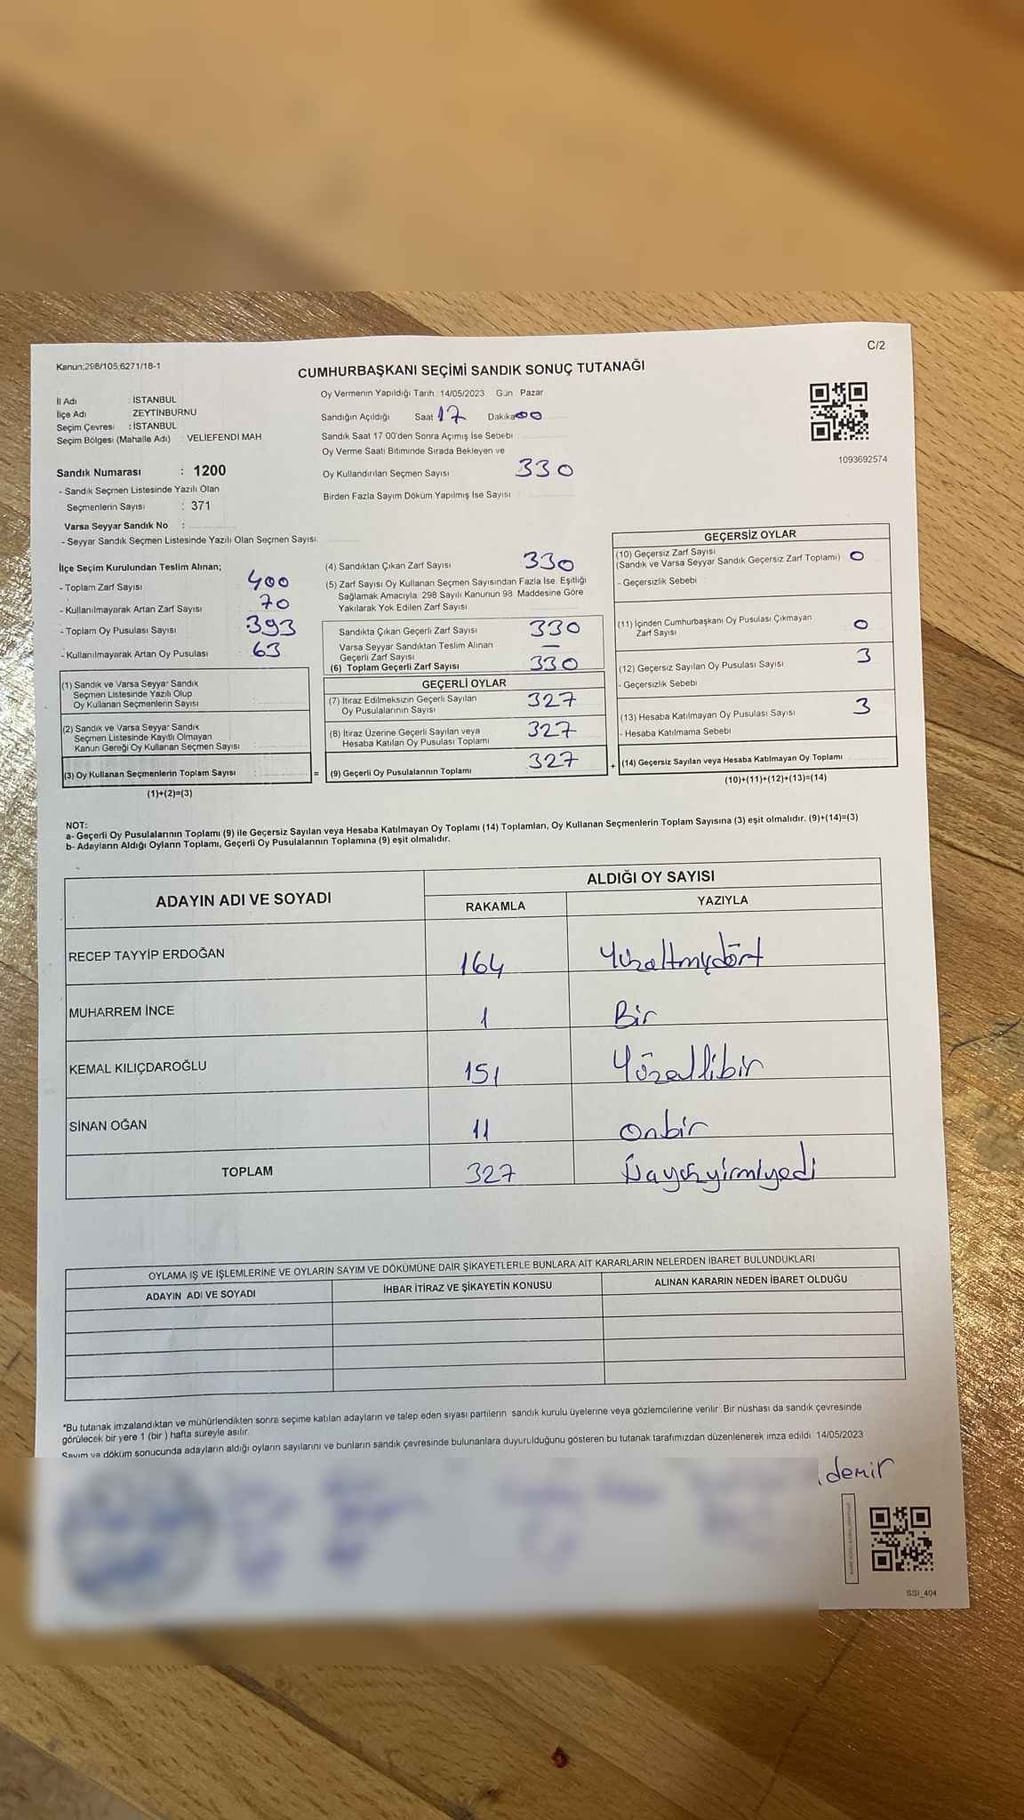 C/2
Kanun;298/105;6271/18-1
CUMHURBAŞKANI SEÇİMİ SANDIK SONUÇ TUTANAĞI
İl Adı : İSTANBUL
İlçe Adı ZEYTİNBURNU
Seçim Çevresi : İSTANBUL
Seçim Bölgesi (Mahalle Adı) VELİEFENDİ MAH
Sandık Numarası : 1200
- Sandık Seçmen Listesinde Yazılı Olan
Seçmenlerin Sayısı : 371
Varsa Seyyar Sandık No :
- Seyyar Sandık Seçmen Listesinde Yazılı Olan Seçmen Sayısı:
Oy Vermenin Yapıldığı Tarih: 14/05/2023 Gün: Pazar
Sandığın Açıldığı Saat 17 Dakika 00
Sandık Saat 17:00'den Sonra Açımış İse Sebebi
Oy Verme Saati Bitiminde Sırada Bekleyen ve
Oy Kullandırılan Seçmen Sayısı 330
Birden Fazla Sayım Döküm Yapılmış İse Sayısı
1093692574
İlçe Seçim Kurulundan Teslim Alınan;
- Toplam Zarf Sayısı 400
- Kullanılmayarak Artan Zarf Sayısı 70
- Toplam Oy Pusulası Sayısı 393
- Kullanılmayarak Artan Oy Pusulası 63
(1) Sandık ve Varsa Seyyar Sandık
Seçmen Listesinde Yazılı Olup
Oy Kullanan Seçmenlerin Sayısı
(2) Sandık ve Varsa Seyyar Sandık
Seçmen Listesinde Kayıtlı Olmayan
Kanun Gereği Oy Kullanan Seçmen Sayısı
(3) Oy Kullanan Seçmenlerin Toplam Sayısı
(1)+(2)=(3)
=
(4) Sandıktan Çıkan Zarf Sayısı 330
(5) Zarf Sayısı Oy Kullanan Seçmen Sayısından Fazla İse, Eşitliği
Sağlamak Amacıyla 298 Sayılı Kanunun 98. Maddesine Göre
Yakılarak Yok Edilen Zarf Sayısı
Sandıkta Çıkan Geçerli Zarf Sayısı 330
Varsa Seyyar Sandıktan Teslim Alınan
Geçerli Zarf Sayısı —
(6) Toplam Geçerli Zarf Sayısı 330
GEÇERLİ OYLAR
(7) İtiraz Edilmeksizin Geçerli Sayılan
Oy Pusulalarının Sayısı 327
(8) İtiraz Üzerine Geçerli Sayılan veya
Hesaba Katılan Oy Pusulası Toplamı 327
(9) Geçerli Oy Pusulalarının Toplamı 327
+
GEÇERSİZ OYLAR
(10) Geçersiz Zarf Sayısı
(Sandık ve Varsa Seyyar Sandık Geçersiz Zarf Toplamı) 0
- Geçersizlik Sebebi
(11) İçinden Cumhurbaşkanı Oy Pusulası Çıkmayan
Zarf Sayısı 0
(12) Geçersiz Sayılan Oy Pusulası Sayısı 3
- Geçersizlik Sebebi
(13) Hesaba Katılmayan Oy Pusulası Sayısı 3
- Hesaba Katılmama Sebebi
(14) Geçersiz Sayılan veya Hesaba Katılmayan Oy Toplamı
(10)+(11)+(12)+(13)=(14)
NOT:
a- Geçerli Oy Pusulalarının Toplamı (9) ile Geçersiz Sayılan veya Hesaba Katılmayan Oy Toplamı (14) Toplamları, Oy Kullanan Seçmenlerin Toplam Sayısına (3) eşit olmalıdır. (9)+(14)=(3)
b- Adayların Aldığı Oyların Toplamı, Geçerli Oy Pusulalarının Toplamına (9) eşit olmalıdır.
ADAYIN ADI VE SOYADI
ALDIĞI OY SAYISI
RAKAMLA YAZIYLA
RECEP TAYYİP ERDOĞAN 164 Yüzaltmışdört
MUHARREM İNCE 1 Bir
KEMAL KILIÇDAROĞLU 151 Yüzellibir
SİNAN OĞAN 11 Onbir
TOPLAM 327 Üçyüzyirmiyedi
OYLAMA İŞ VE İŞLEMLERİNE VE OYLARIN SAYIM VE DÖKÜMÜNE DAİR ŞİKAYETLERLE BUNLARA AİT KARARLARIN NELERDEN İBARET BULUNDUKLARI
ADAYIN ADI VE SOYADI İHBAR İTİRAZ VE ŞİKAYETİN KONUSU ALINAN KARARIN NEDEN İBARET OLDUĞU
*Bu tutanak imzalandıktan ve mühürlendikten sonra seçime katılan adayların ve talep eden siyasi partilerin sandık kurulu üyelerine veya gözlemcilerine verilir. Bir nüshası da sandık çevresinde
görülecek bir yere 1 (bir) hafta süreyle asılır.
Sayım ve döküm sonucunda adayların aldığı oyların sayılarını ve bunların sandık çevresinde bulunanlara duyurulduğunu gösteren bu tutanak tarafımızdan düzenlenerek imza edildi. 14/05/2023
demir
SSI_404